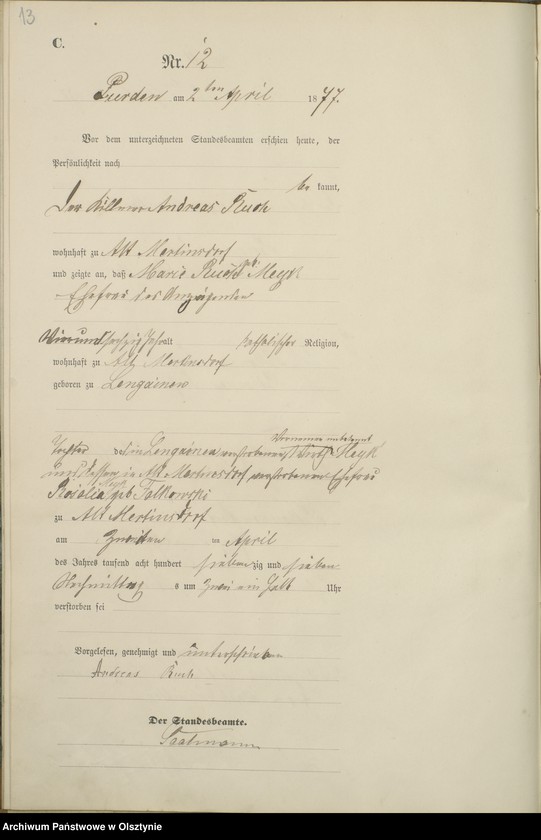 13
C.
Nr. 12
Purden am 2ten April 1877.
Vor dem unterzeichneten Standesbeamten erschien heute, der
Persönlichkeit nach
be kannt,
Der Andreas Ruch
wohnhaft zu Alt Mertinsdorf
und zeigte an, daß Marie Ruch geb
Ehefrau des Anzeigenden
Vierundsechzig Jahr alt katholischer Religion,
wohnhaft zu Alt Mertinsdorf
geboren zu Lengainen
Vorname unbekannt
Tochter des in Lengainen verstorbenen
und dessen in Alt Mertinsdorf verstorbenen Ehefrau
Rosalia geb Falkowski
zu Alt Mertinsdorf
am Zweiten im April
des Jahres tausend acht hundert siebenzig und sieben
Nachmittags um Zwei ein halb Uhr
verstorben sei
Vorgelesen, genehmigt und unterschrieben
Andreas Ruch
Der Standesbeamte.
Archiwum Państwowe w Olsztynie